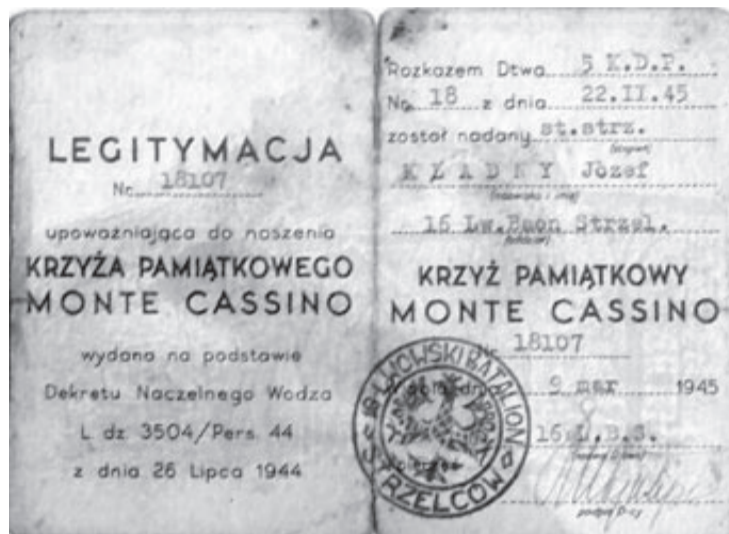 LEGITYMACJA
Nr. 18107
upoważniająca do noszenia
KRZYŻA PAMIĄTKOWEGO
MONTE CASSINO
wydana na podstawie
Dekretu Naczelnego Wodza
L dz 3504/Pers. 44
z dnia 26 Lipca 1944
Rozkazem Dtwa 5 K.D.P.
No 18 z dnia 22.II.45
został nadany st.strz.
(stopień)
Józef
(nazwisko i imię)
16 Lw.Baon Strzel.
(oddział)
KRZYŻ PAMIĄTKOWY
MONTE CASSINO
Nr 18107
9 mar 1945
16 L.B.S.
podpis D-cy
LWOWSKI BATALION
STRZELCÓW